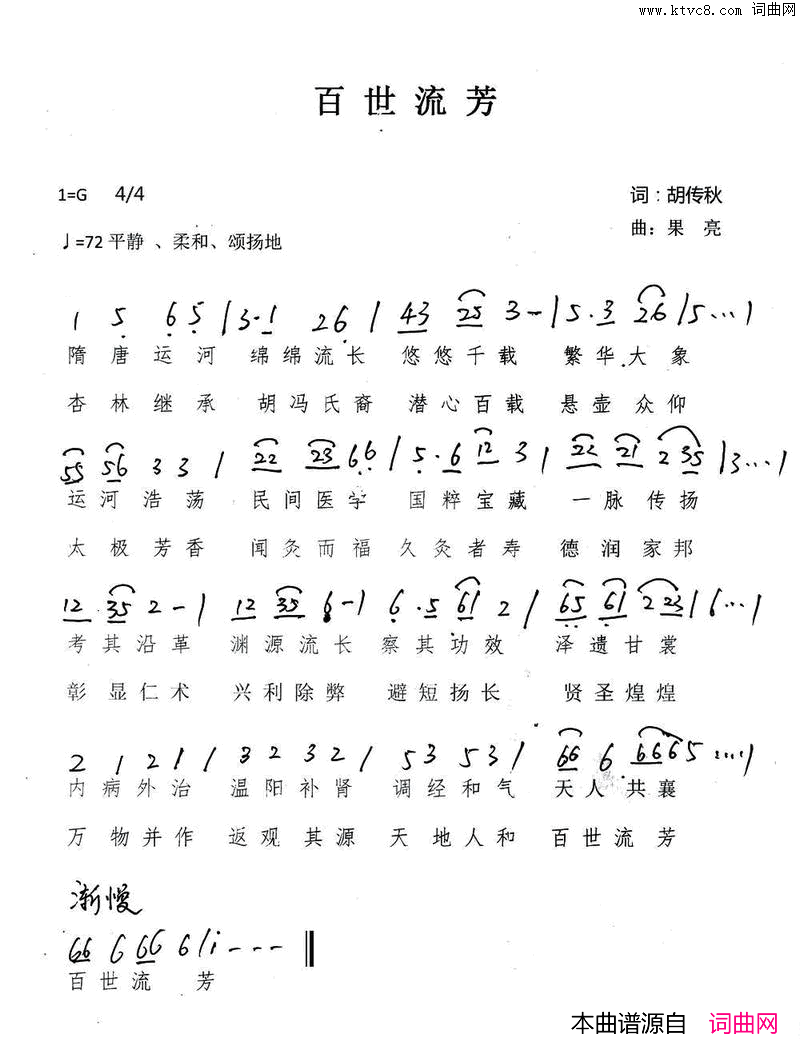 www.ktvc8.com 词曲网
百世流芳
1=G 4/4 词：胡传秋
♩=72 平静 、柔和、颂扬地 曲：果 亮
1 5 6 5 | 3·1 2 6 | 43 25 3 - | 5·3 26 | 5 ··· |
隋唐运河 绵绵流长 悠悠千载 繁华大象
杏林继承 胡冯氏裔 潜心百载 悬壶众仰
55 56 3 3 | 22 23 6 6 | 5·6 12 3 | 22 21 2 35 | 3 ··· |
运河浩荡 民间医学 国粹宝藏 一脉传扬
太极芳香 闻灸而福 久灸者寿 德润家邦
12 35 2 - | 12 35 6 - | 6·5 61 2 | 65 61 2 23 | 6 ··· |
考其沿革 渊源流长 察其功效 泽遗甘裳
彰显仁术 兴利除弊 避短扬长 贤圣煌煌
2 1 2 1 | 3 2 3 2 | 5 3 5 3 | 66 6 6665 ··· |
内病外治 温阳补肾 调经和气 天人共襄
万物并作 返观其源 天地人和 百世流芳
渐慢
66 6 66 6 | i - - -
百世流 芳
本曲谱源自 词曲网